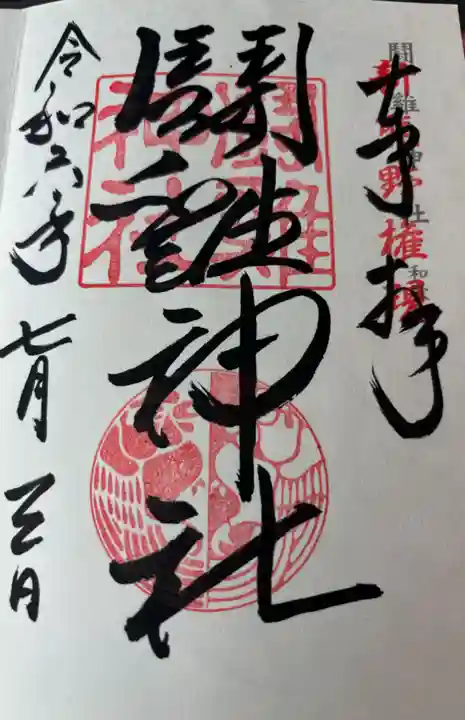 奉拝
新熊野権現
闘雞神社
闘雞神社
令和六年 七月 三日